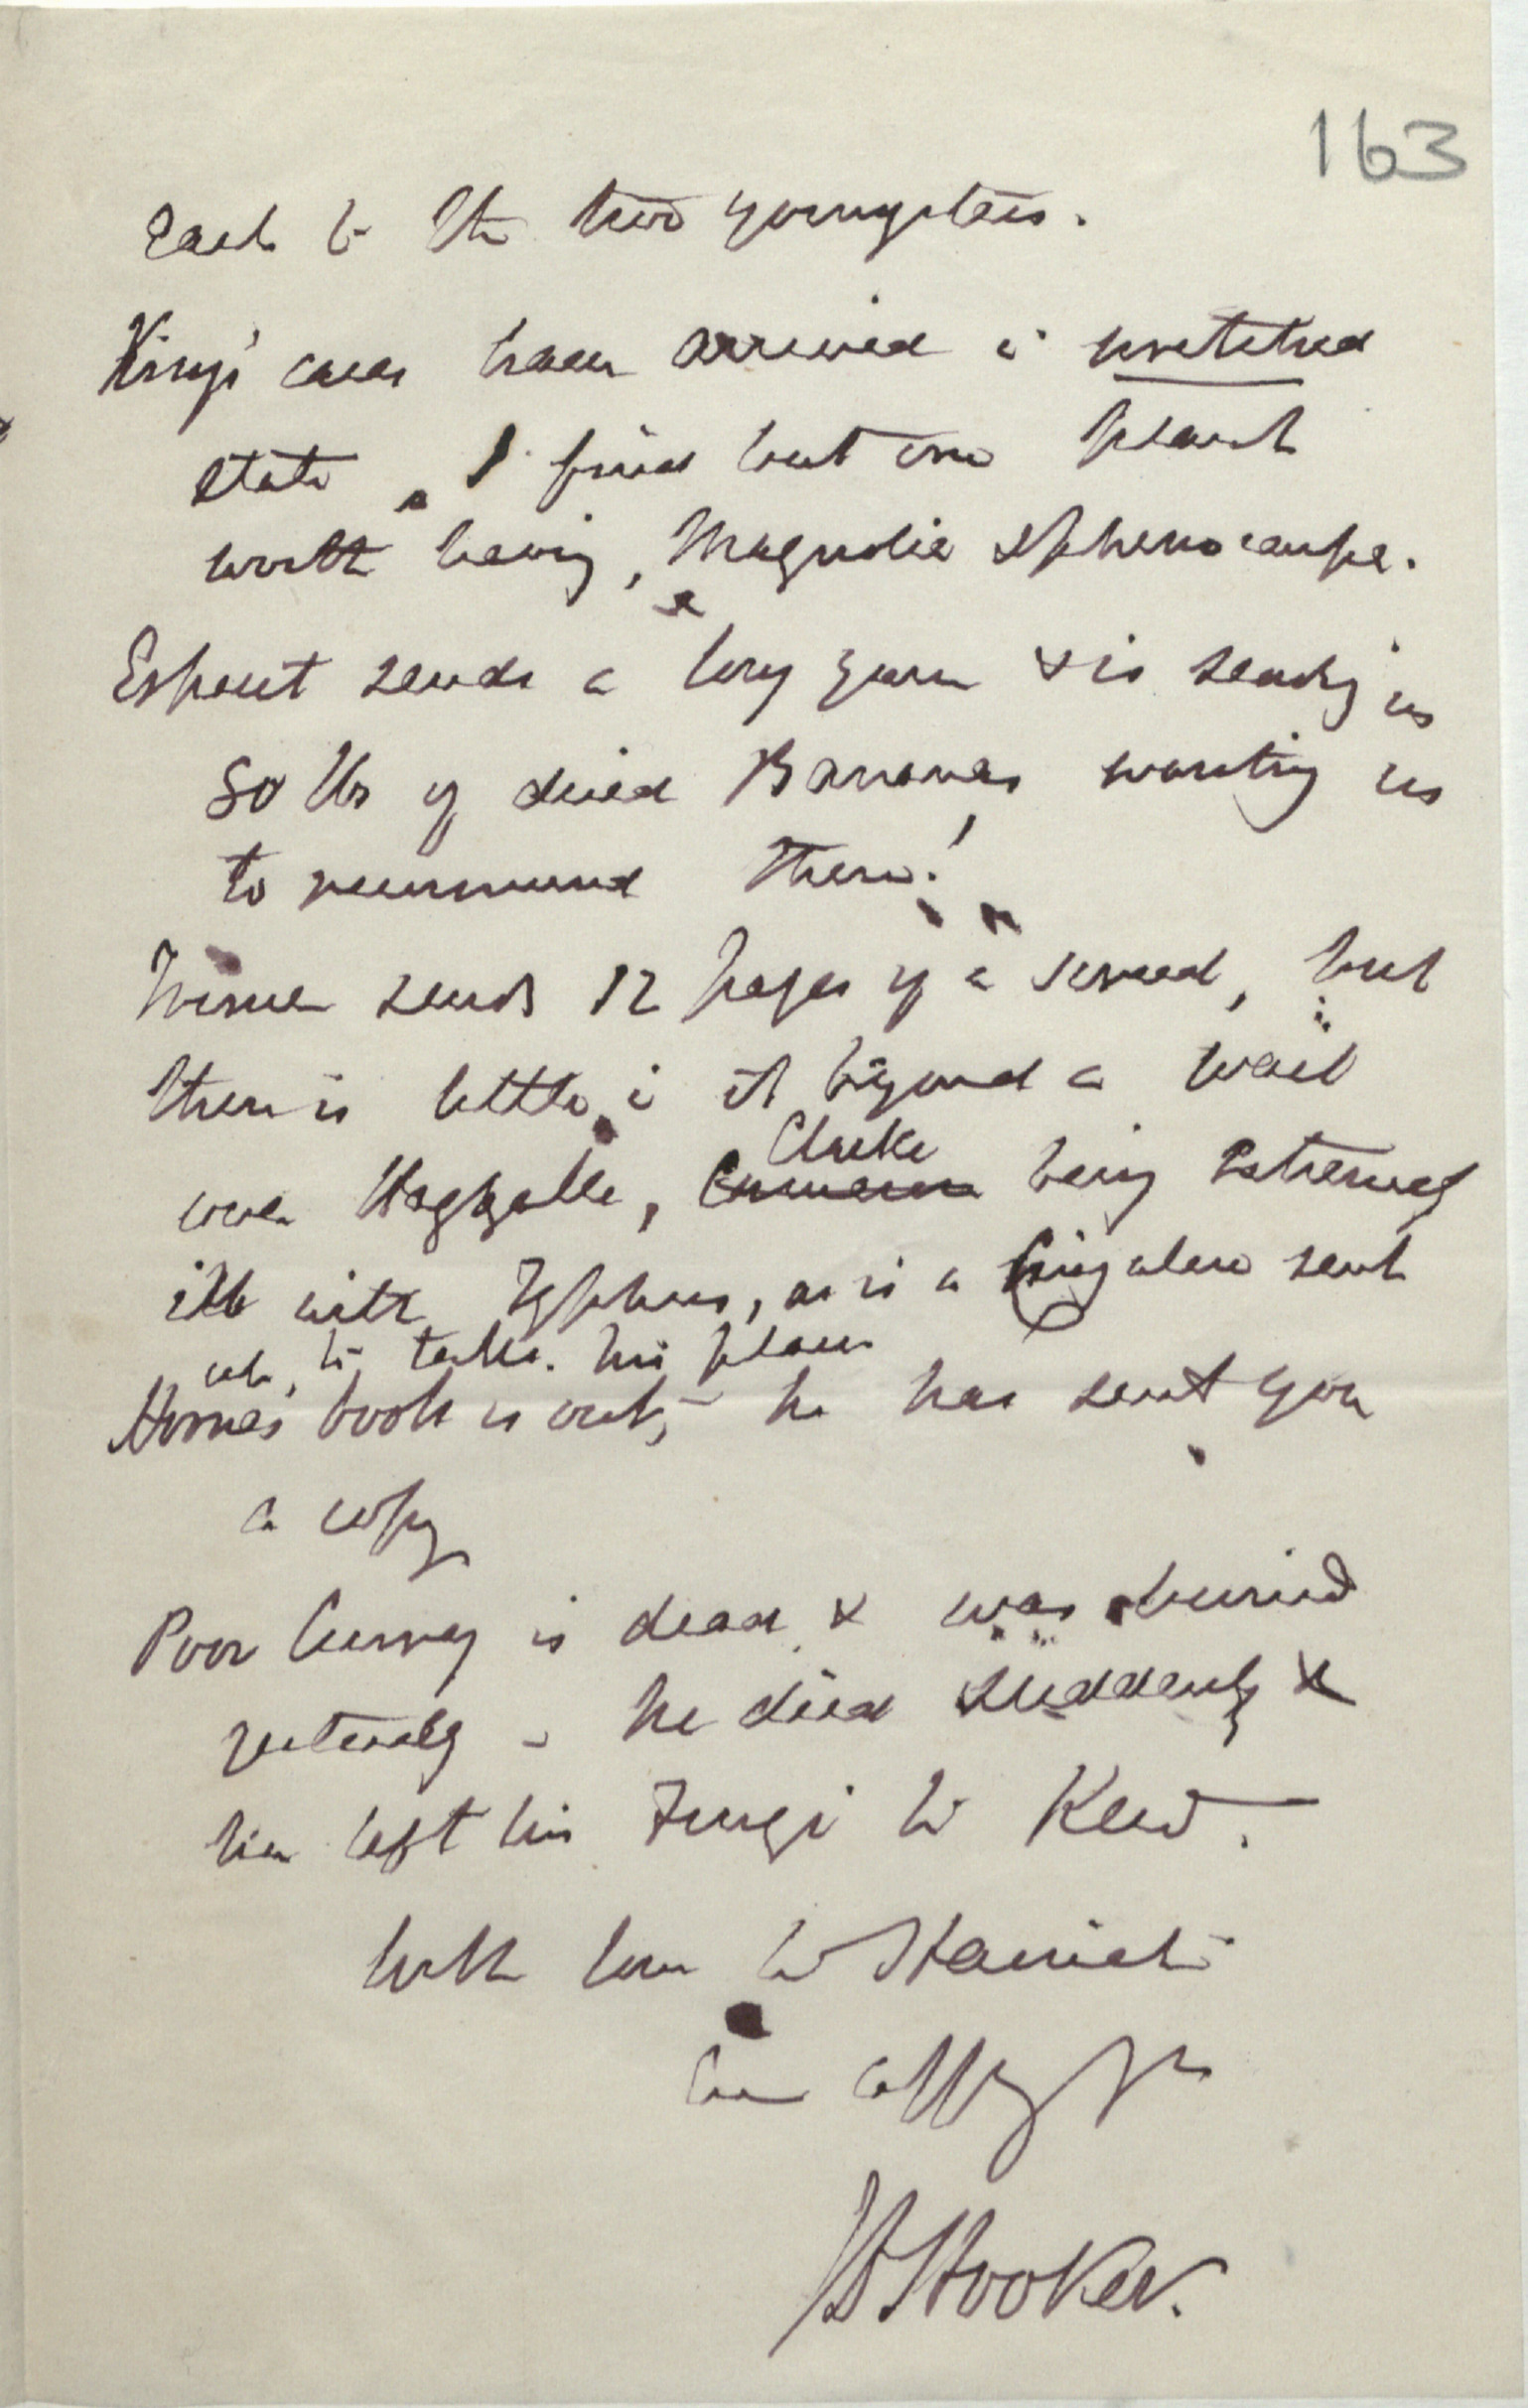 163
each to the two youngsters.
King's cases have arrived in wretched
state, I find but one plant
worth having, Magnolia sphenocarpa.
Espeut sends a long yarn & is sending us
50 lbs of dried Bananas wanting us
to recommend them!
Trimen sends 12 pages of a screed, but
there is little in it beyond a wail
over Hakgalle, Clarke being extremely
ill with Typhus, as is a Singalese sent
up to take his place
Horne's book is out, — he has sent you
a copy
Poor Currey is dead & was buried
yesterday — he died suddenly &
has left his Fungi to Kew. —
With love to Harriet
Ever affy yrs
JD Hooker.